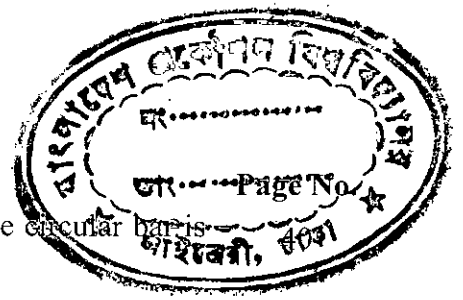 বাংলাদেশ প্রকৌশল বিশ্ববিদ্যালয়
নং..............
তাং.........
Page No.
e circular bar is 40
লাইব্রেরী, ঢাকা